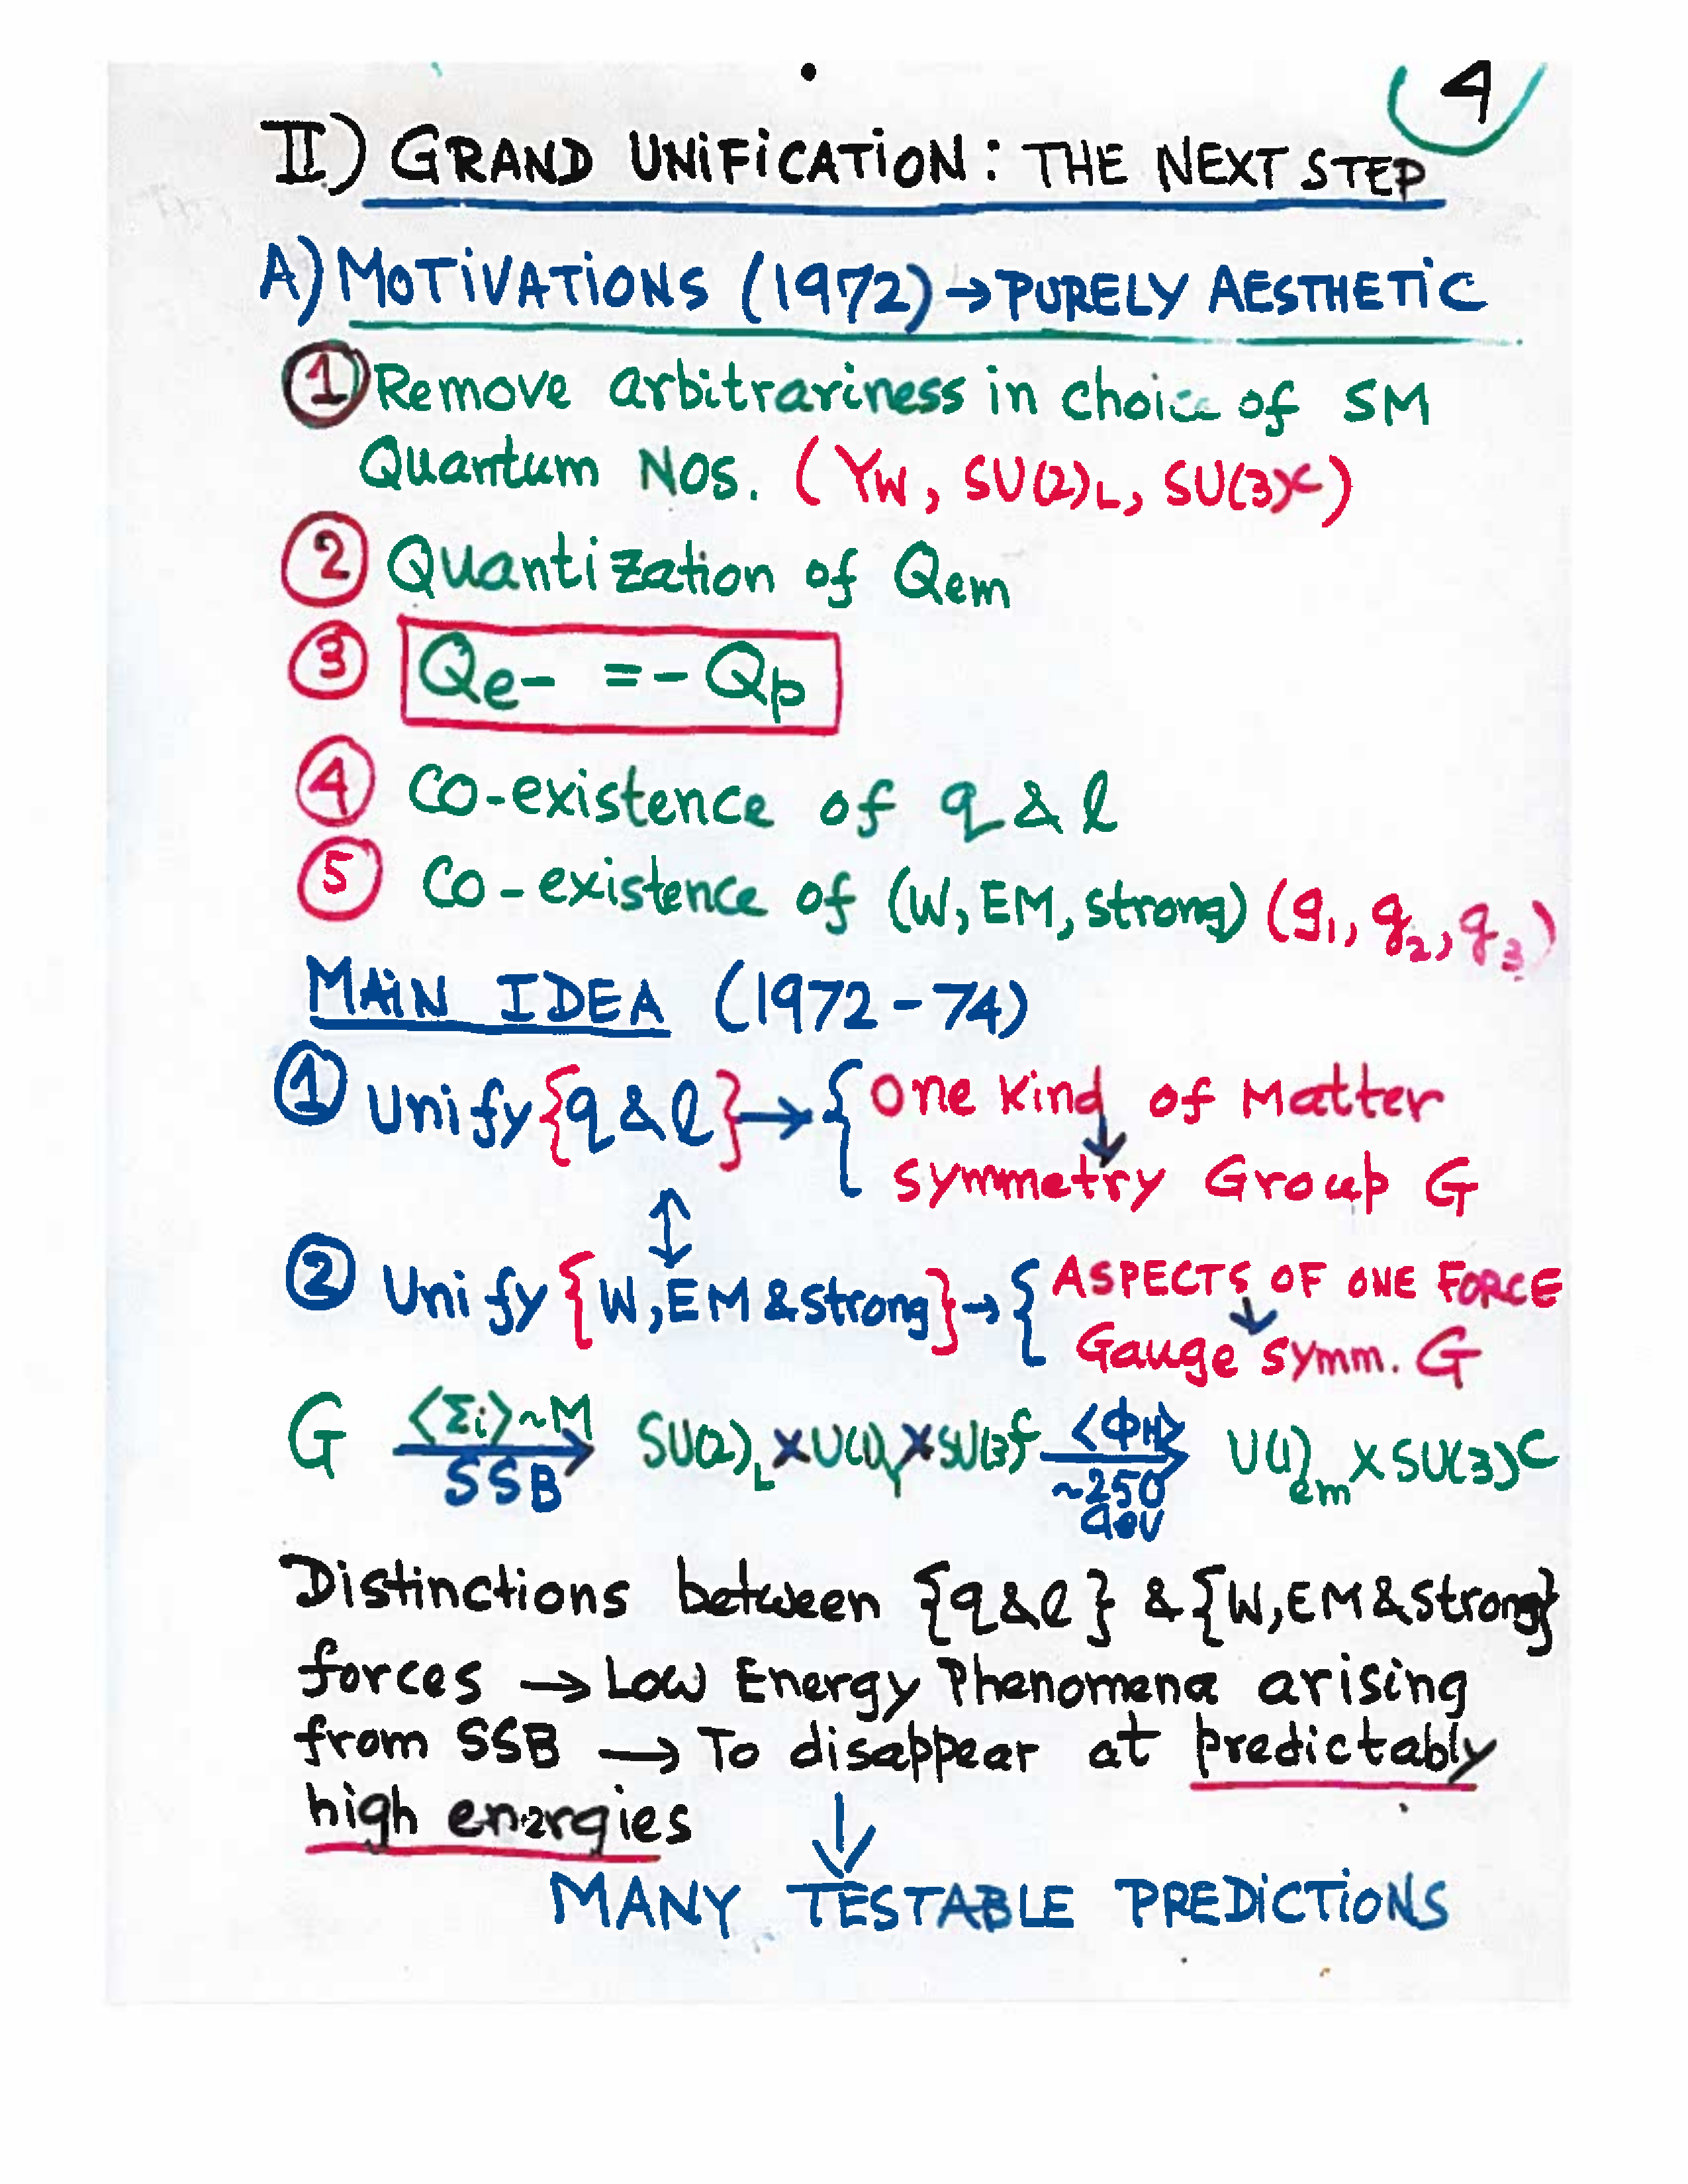 4
II) GRAND UNIFICATION: THE NEXT STEP
A) MOTIVATIONS (1972) → PURELY AESTHETIC
① Remove arbitrariness in choice of SM
Quantum Nos. (Y_W, SU(2)_L, SU(3)^C)
② Quantization of Q_em
③ Q_e- = -Q_p
④ Co-existence of q & l
⑤ Co-existence of (W, EM, strong) (g_1, g_2, g_3)
MAIN IDEA (1972-74)
① Unify {q & l} → { One Kind of Matter
↓
Symmetry Group G
↕
② Unify {W, EM & strong} → { ASPECTS OF ONE FORCE
↓
Gauge Symm. G
G —⟨Σ_i⟩~M / SSB→ SU(2)_L × U(1)_Y × SU(3)^C —⟨Φ_H⟩ / ~250 GeV→ U(1)_em × SU(3)^C
Distinctions between {q & l} & {W, EM & strong}
forces → Low Energy Phenomena arising
from SSB → To disappear at predictably
high energies ↓
MANY TESTABLE PREDICTIONS